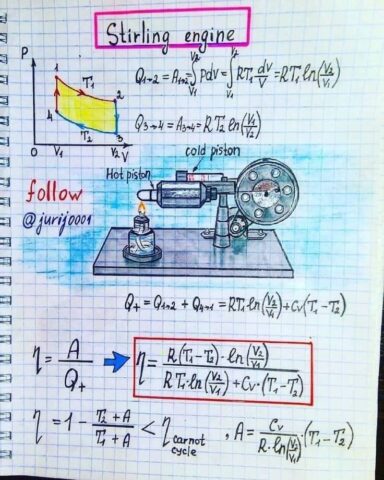 Stirling engine
P
1
T₁
2
4
T₂
3
0
V₁
V₂
V
Q₁→₂ = A₁→₂ = ∫_{V₁}^{V₂} pdv = ∫ RT₁ dv/V = RT₁ ln(V₂/V₁)
Q₃→₄ = A₃→₄ = RT₂ ln(V₁/V₂)
cold piston
Hot piston
follow
@jurij0001
Q₊ = Q₁→₂ + Q₄→₁ = RT₁ ln(V₂/V₁) + Cv(T₁-T₂)
η = A/Q₊ → η = R(T₁-T₂)·ln(V₂/V₁) / RT₁·ln(V₂/V₁) + Cv·(T₁-T₂)
η = 1 - T₂+A/T₁+A < η carnot cycle , A = Cv/R·ln(V₂/V₁)·(T₁-T₂)